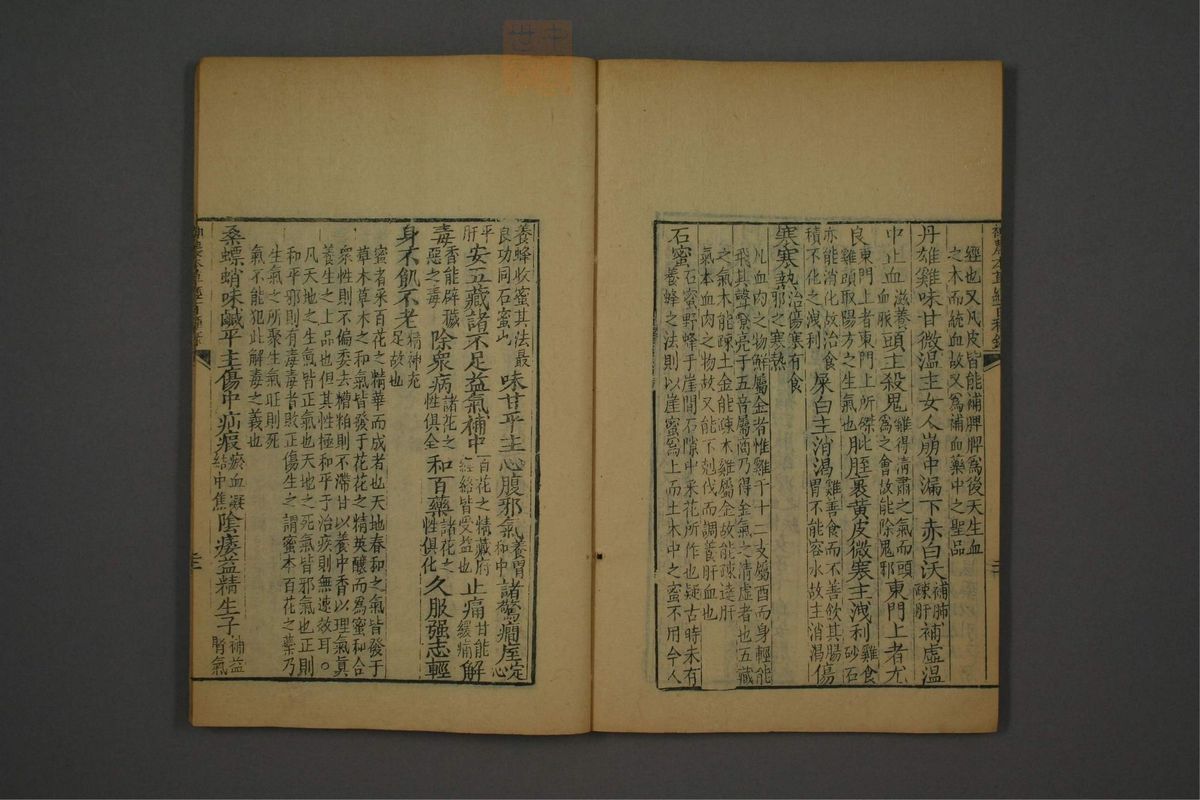 經也又凡皮皆能補脾脾為後天生血
之本而統血故又為補血藥中之聖品
丹雄雞味甘微溫主女人崩中漏下赤白沃補肺疎肝補虛溫
中止血滋養血脈頭主殺鬼雞得清肅之氣而頭為之會故能除鬼邪東門上者尤
良東門上者東門上所磔比雞頭取陽方之生氣也肶胵裹黃皮微寒主洩利雞食砂石
亦能消化故治食積不化之洩利屎白主消渴雞善食而不善飲其腸胃不能容水故主消渴傷
寒寒熱治傷寒有食邪之寒熱
凡血肉之物鮮屬金者惟雞于十二支屬酉而身輕能
飛其聲亮于五音屬商乃得金氣之清虛者也五藏
之氣木能疎土金能疎木雞屬金故能疎達肝
氣本血肉之物故又能不剋伐而調養肝血也
石蜜石蜜野蜂于崖間石隙中采花所作也疑古時未有
養蜂之法則以崖蜜為上而土木中之蜜不用今人
養蜂收蜜其法最良功同石蜜也味甘平主心腹邪氣養胃和中諸驚癇痓定心
平肝安五藏諸不足益氣補中百花之精藏府經絡皆受益也止痛甘能緩痛解
毒香能辟穢惡之毒除眾病諸花之性俱全和百藥諸花之性俱化久服强志輕
身不飢不老精神充足故也
蜜者采百花之精華而成者也天地春和之氣皆發于
草木草木之和氣皆發于花花之精英釀而為蜜和合
眾性則不偏委去糟粕則不滯甘以養中香以理氣真
養生之上品也但其性極和平于治疾則無速效耳○
凡天地之生氣皆正氣也天地之死氣皆邪氣也正則
和平邪則有毒毒者敗正傷生之謂蜜本百花之蘂乃
生氣之所聚生氣旺則死
氣不能犯此解毒之義也
桑螵蛸味鹹平主傷中疝瘕瘀血凝結中焦陰痿益精生子補益腎氣